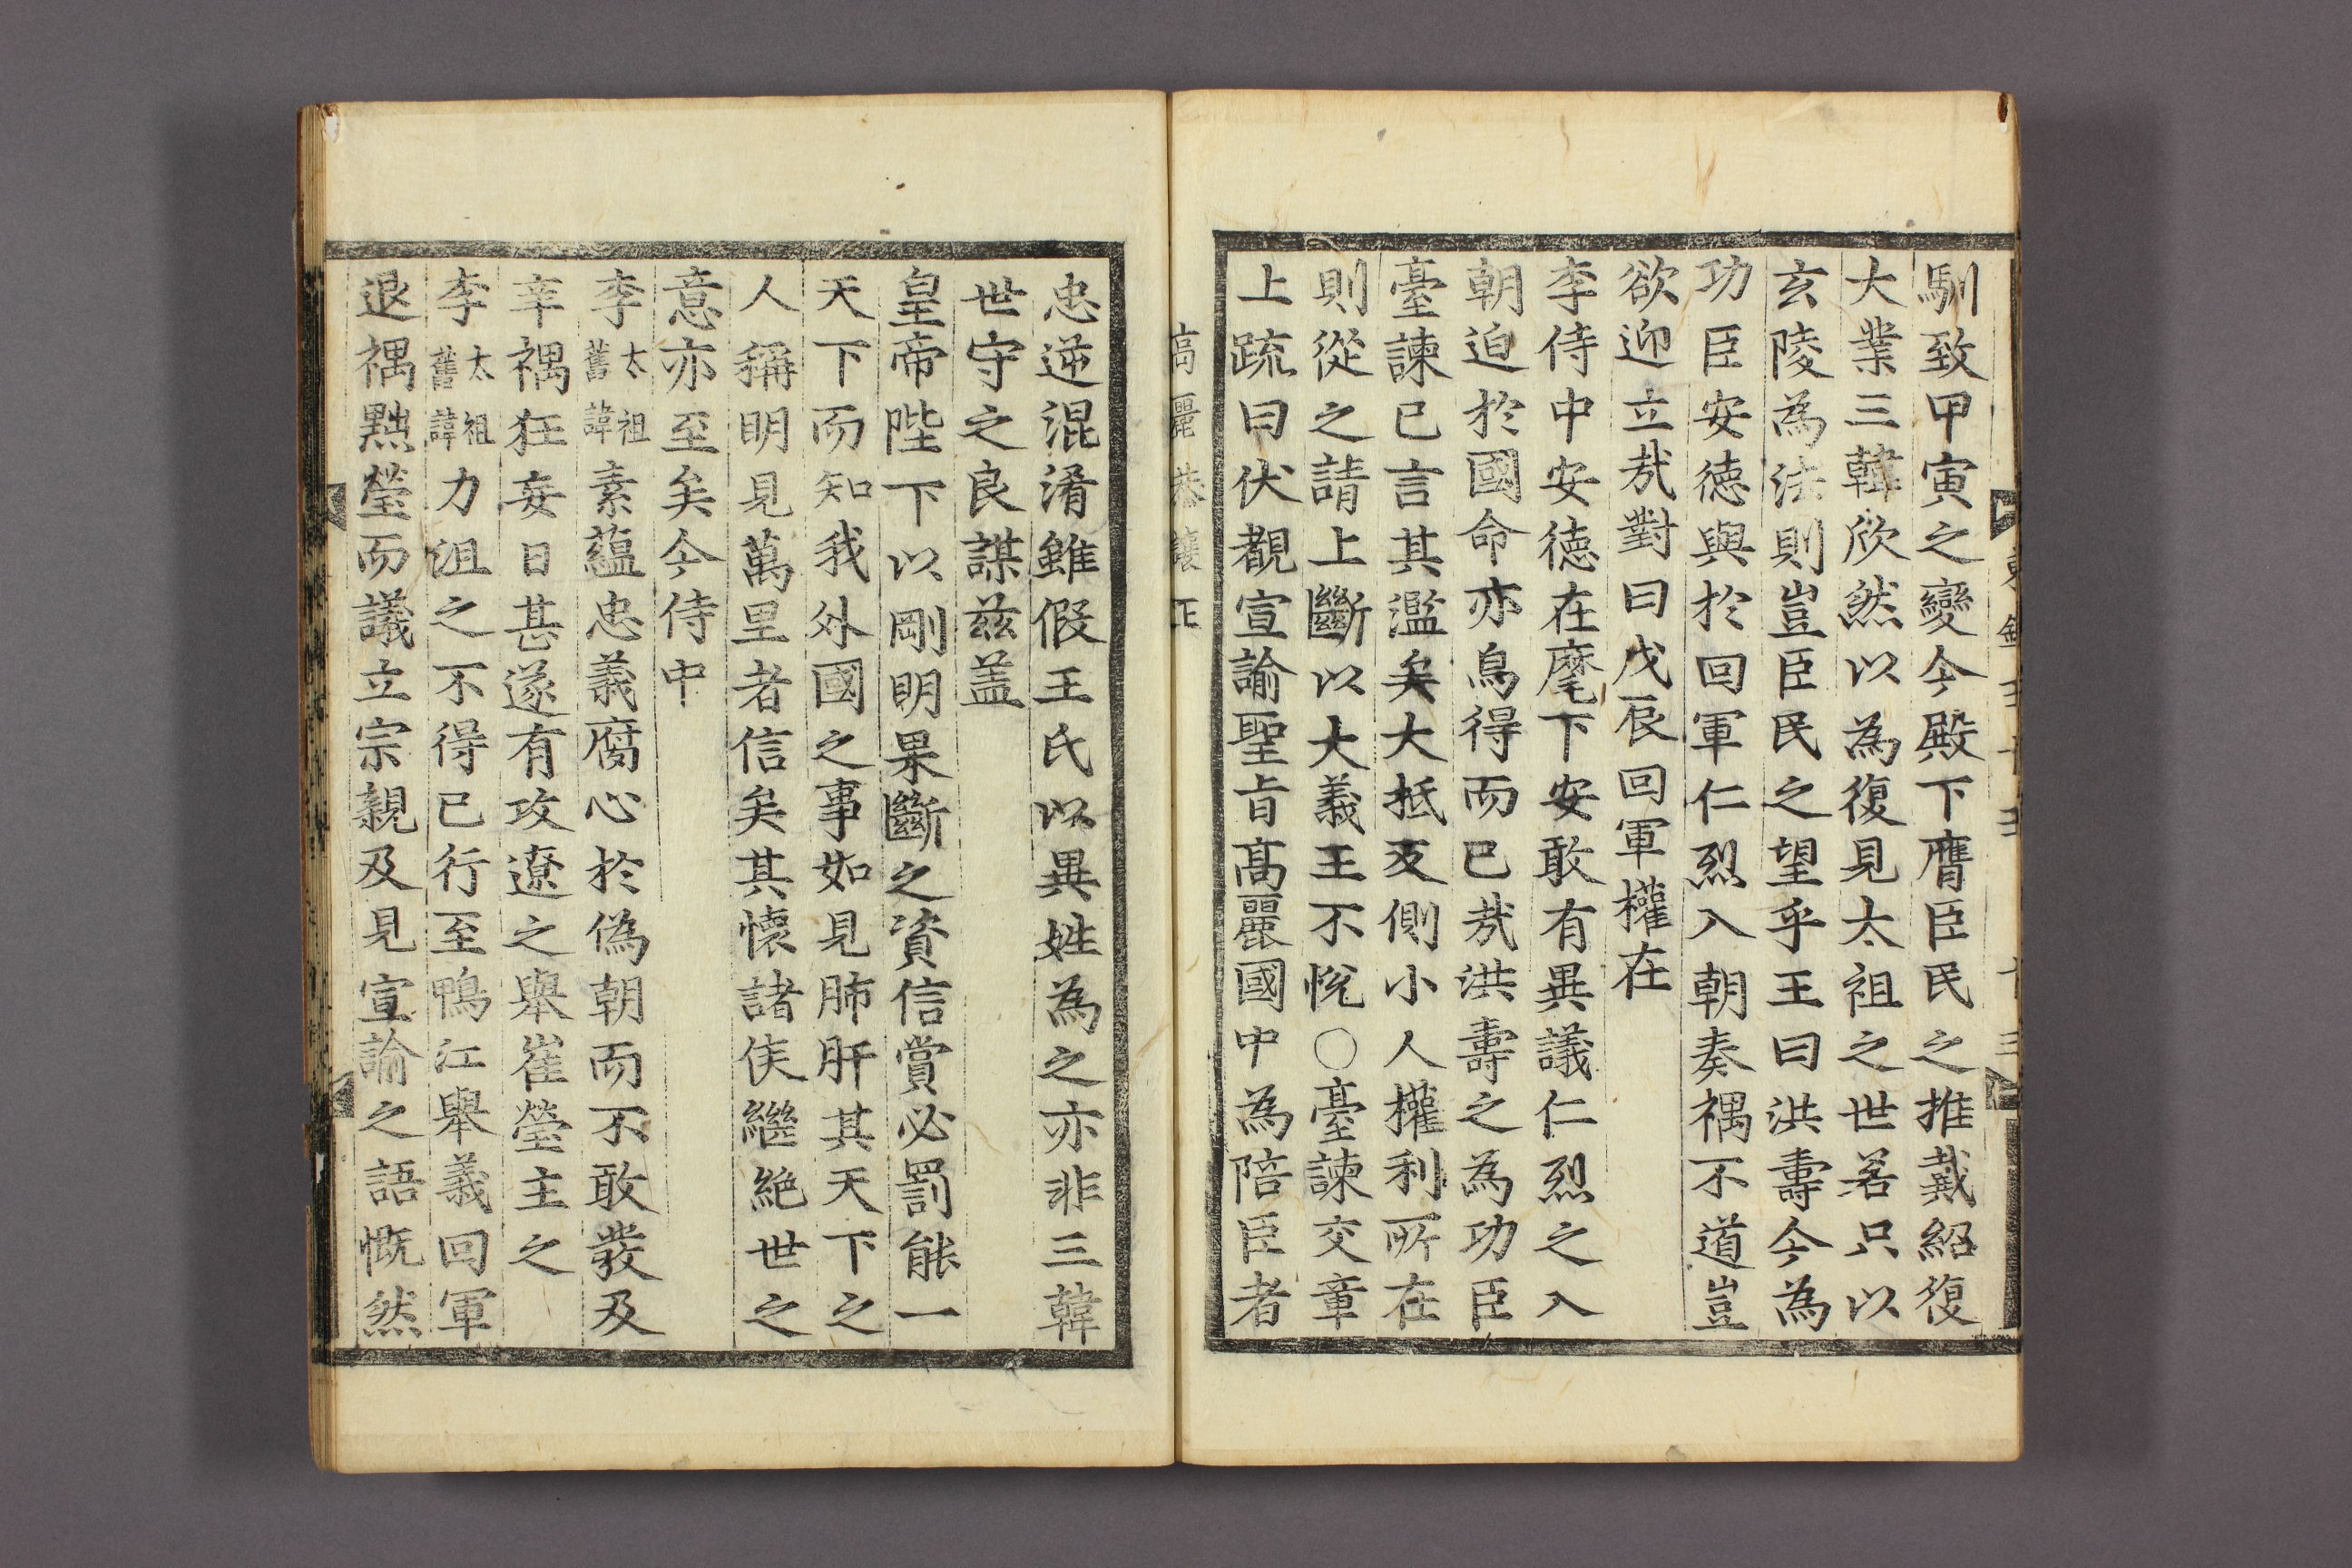 馴致甲寅之變今殿下膺臣民之推戴紹復
大業三韓欣然以為復見太祖之世若只以
玄陵為法則豈臣民之望乎王曰洪壽今為
功臣安徳與於回軍仁烈入朝奏禑不道豈
欲迎立㢤對曰戊辰回軍權在
李侍中安徳在麾下安敢有異議仁烈之入
朝迫於國命亦烏得而已㢤洪壽之為功臣
臺諫已言其濫矣大抵反側小人權利所在
則從之請上斷以大義王不悅○臺諫交章
上疏曰伏覩宣諭聖旨髙麗國中為陪臣者
高麗恭讓王
忠逆混淆雖假王氏以異姓為之亦非三韓
世守之良謀兹盖
皇帝陛下以剛明果斷之資信賞必罰能一
天下而知我外國之事如見肺肝其天下之
人稱明見萬里者信矣其懷諸侯繼絶世之
意亦至矣今侍中
李太祖舊諱素蘊忠義腐心於偽朝而不敢發及
辛禑狂妄日甚遂有攻遼之舉崔瑩主之
李太祖舊諱力沮之不得已行至鴨江舉義回軍
退禑黜瑩而議立宗親及見宣諭之語慨然